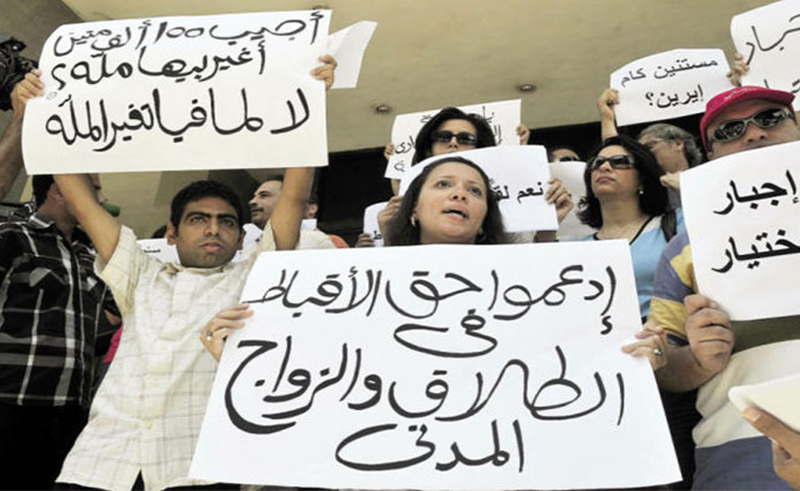 أجيب 100 ألف منين
أغير بيها ملة؟
لا لمافيا تغير الملة
مستنين كام
إيرين؟
نعم
إجبار
ختيار
إدعموا حق الأقباط
في
الطلاق والزواج
المدنى